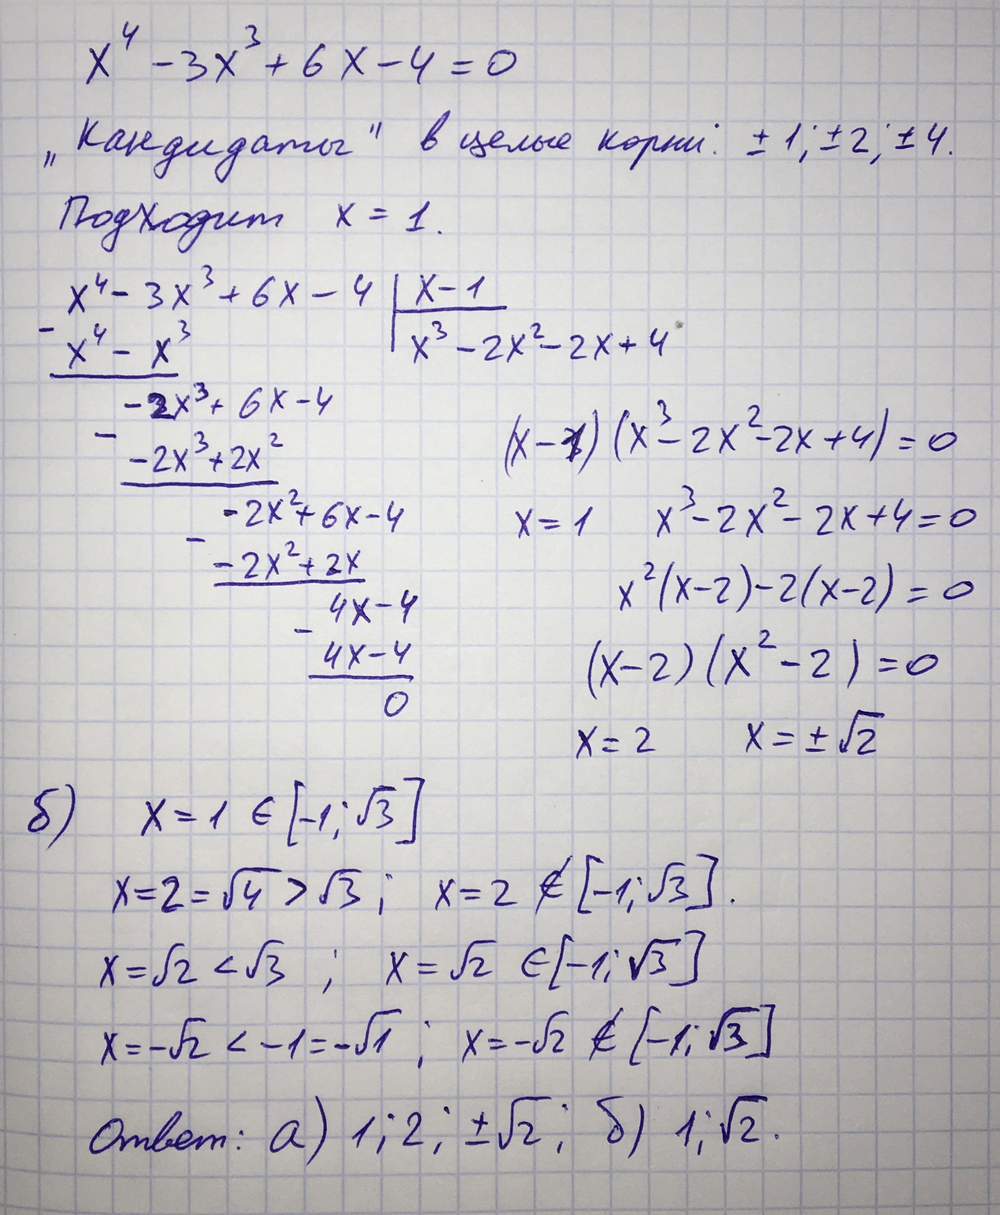 x⁴ - 3x³ + 6x - 4 = 0
„Кандидаты" в целые корни: ±1; ±2; ±4.
Подходит x = 1.
x⁴ - 3x³ + 6x - 4 | x - 1
- x⁴ - x³
x³ - 2x² - 2x + 4
-2x³ + 6x - 4
- -2x³ + 2x²
-2x² + 6x - 4
- -2x² + 2x
4x - 4
- 4x - 4
0
(x - 1)(x³ - 2x² - 2x + 4) = 0
x = 1 x³ - 2x² - 2x + 4 = 0
x²(x - 2) - 2(x - 2) = 0
(x - 2)(x² - 2) = 0
x = 2 x = ±√2
б) x = 1 ∈ [-1; √3]
x = 2 = √4 > √3; x = 2 ∉ [-1; √3].
x = √2 < √3; x = √2 ∈ [-1; √3]
x = -√2 < -1 = -√1; x = -√2 ∉ [-1; √3]
Ответ: а) 1; 2; ±√2; б) 1; √2.